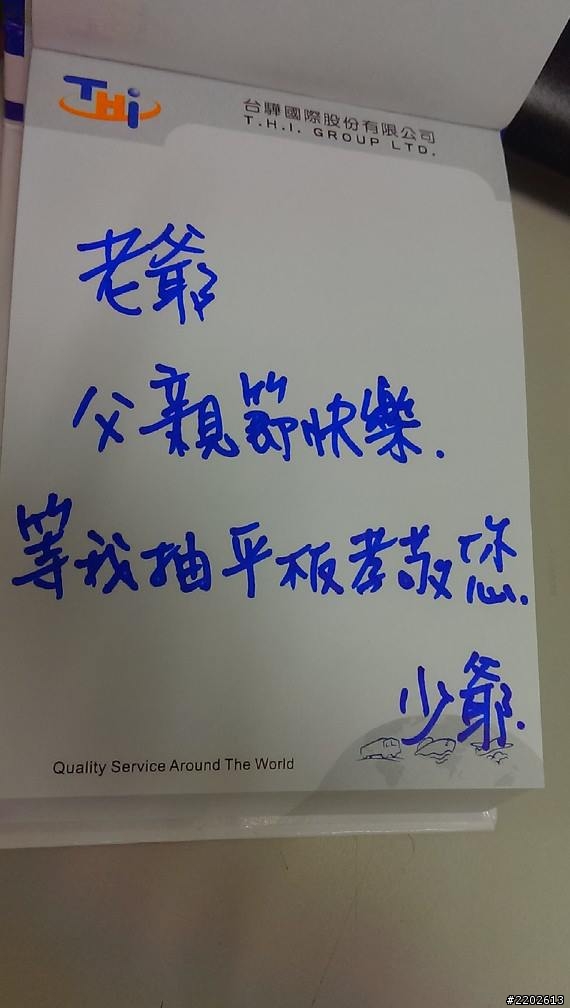 THi
台驊國際股份有限公司
T.H.I. GROUP LTD.
老爺
父親節快樂.
等我抽平板孝敬您.
少爺.
Quality Service Around The World
#2202613